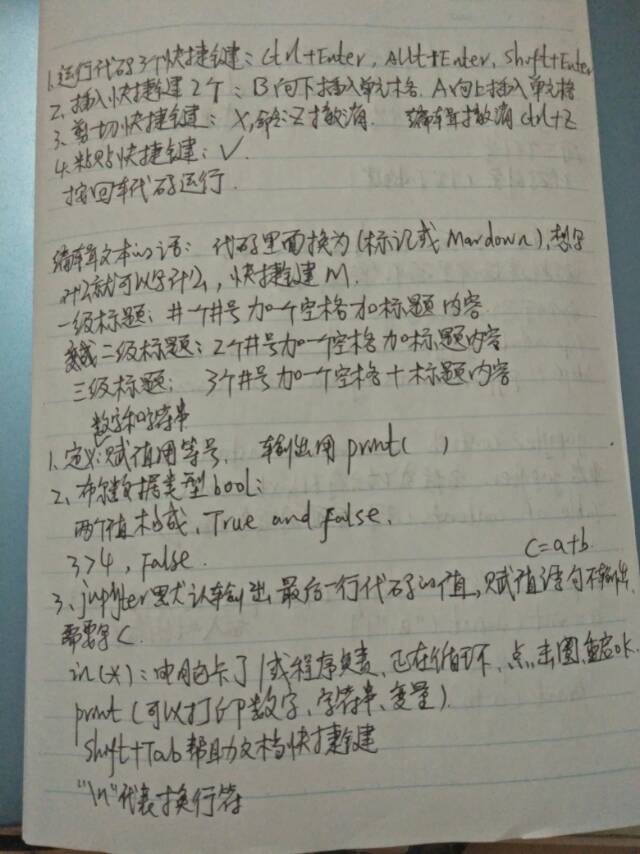 1.运行代码3个快捷键：Ctrl+Enter，Allt+Enter，Shift+Enter
2、插入快捷键2个：B向下插入单元格．A向上插入单元格
3、剪切快捷键：X，命令Z撤消．编辑撤消Ctrl+Z
4.粘贴快捷键：V
按回车代码运行．
编辑文本的话：代码里面换为(标记或Mardown)，想写
什么就可以写什么，快捷键M．
一级标题：井一个井号加一个空格加标题内容
二级标题：2个井号加一个空格加标题内容
三级标题：3个井号加一个空格+标题内容
数字和字符串
1、定义:赋值用等号．输出用print( )
2、布尔数据类型bool：
两个值构成，True and false．
3>4，False．
c=a+b
3、jupyter默认输出最后一行代码的值，赋值语句不输出，
需要写C．
in(*)：电脑卡了/或程序，正在循环、点击重启ok.
print(可以打印数字、字符串、变量)．
shift+Tab帮助文档快捷键
"\n"代表换行符